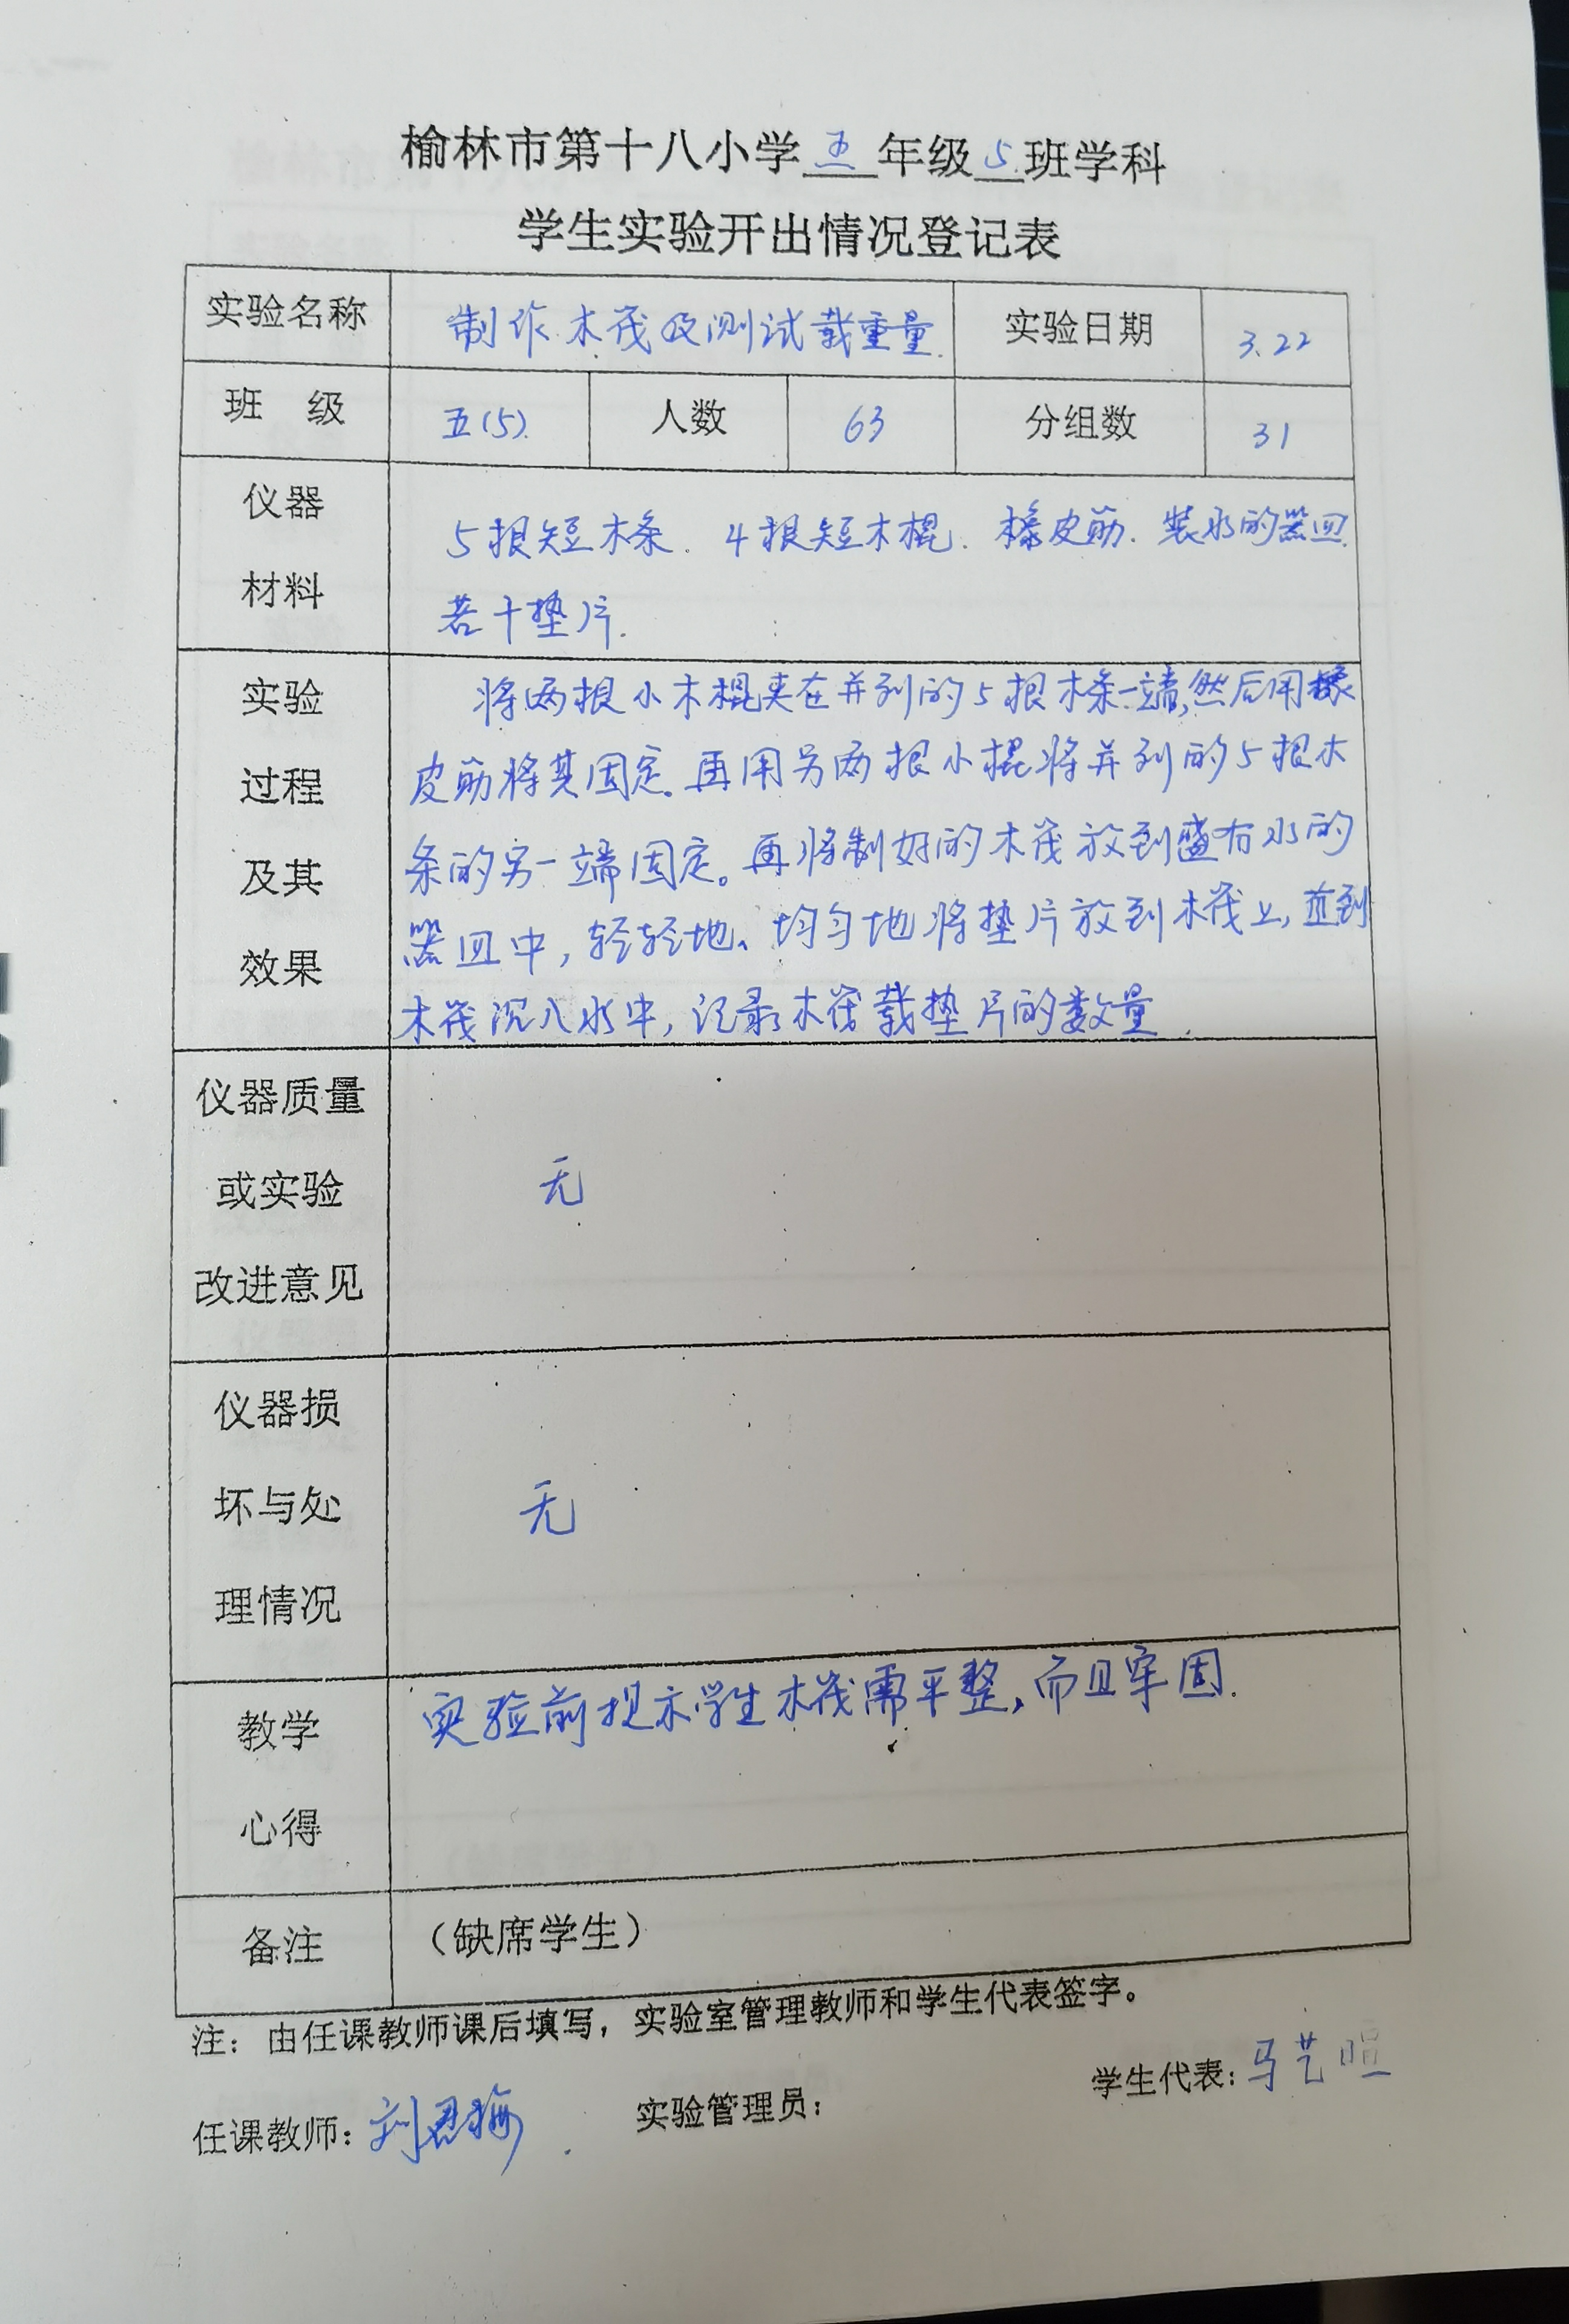 榆林市第十八小学五年级5班学科
学生实验开出情况登记表
实验名称 制作木筏及测试载重量. 实验日期 3.22
班 级 五(5). 人数 63 分组数 31
仪器
材料
5根短木条. 4根短木棍. 橡皮筋. 装水的器皿.
若干垫片.
实验
过程
及其
效果
将两根小木棍夹在并列的5根木条一端,然后用橡
皮筋将其固定。再用另两根小棍将并列的5根木
条的另一端固定。再将制好的木筏放到盛有水的
器皿中,轻轻地、均匀地将垫片放到木筏上,直到
木筏沉入水中,记录木筏载垫片的数量.
仪器质量
或实验
改进意见
无
仪器损
坏与处
理情况
无
教学
心得
实验前提示学生木筏需平整,而且牢固.
备注 （缺席学生）
注：由任课教师课后填写，实验室管理教师和学生代表签字。
任课教师: 刘 实验管理员: 学生代表: 马艺